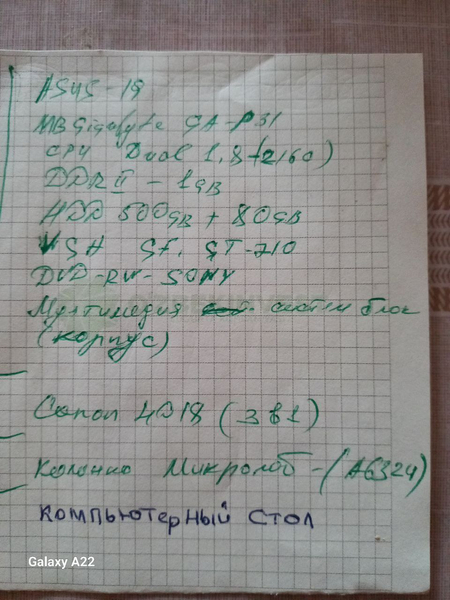 ASUS-19
MB Gigabyte GA-P31
CPU Dual 1,8 (2160)
DDR II - 1GB
HDD 500GB + 80GB
VGA GF. GT-710
DVD-RW-SONY
Мултимедия систем блок
(корпус)
Canon 4018 (3 в 1)
Колонка Микролаб - (A6324)
Компьютерный стол
Galaxy A22